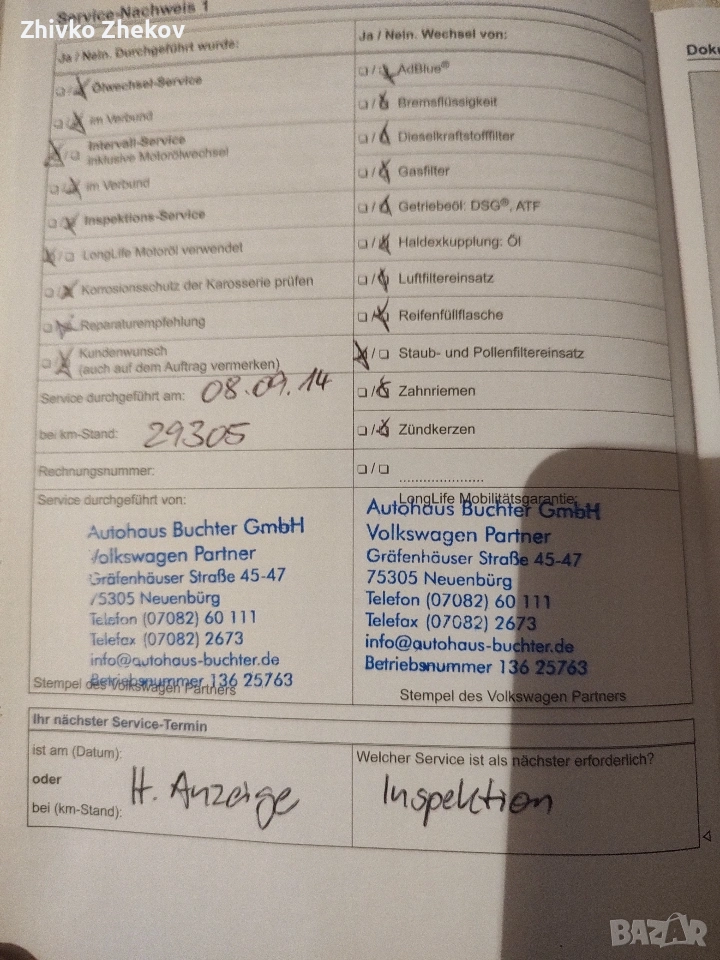 Zhivko Zhekov
Service-Nachweis 1
Ja / Nein. Durchgeführt wurde:
Ölwechsel-Service
im Verbund
Intervall-Service
inklusive Motorölwechsel
im Verbund
Inspektions-Service
LongLife Motoröl verwendet
Korrosionsschutz der Karosserie prüfen
Reparaturempfehlung
Kundenwunsch
(auch auf dem Auftrag vermerken)
Service durchgeführt am: 08.09.14
bei km-Stand: 29305
Rechnungsnummer:
Service durchgeführt von:
Autohaus Buchter GmbH
Volkswagen Partner
Gräfenhäuser Straße 45-47
75305 Neuenbürg
Telefon (07082) 60 111
Telefax (07082) 2673
info@autohaus-buchter.de
Betriebsnummer 136 25763
Stempel des Volkswagen Partners
Ja / Nein. Wechsel von:
AdBlue®
Bremsflüssigkeit
Dieselkraftstofffilter
Gasfilter
Getriebeöl: DSG®, ATF
Haldexkupplung: Öl
Luftfiltereinsatz
Reifenfüllflasche
Staub- und Pollenfiltereinsatz
Zahnriemen
Zündkerzen
LongLife Mobilitätsgarantie:
Autohaus Buchter GmbH
Volkswagen Partner
Gräfenhäuser Straße 45-47
75305 Neuenbürg
Telefon (07082) 60 111
Telefax (07082) 2673
info@autohaus-buchter.de
Betriebsnummer 136 25763
Stempel des Volkswagen Partners
Ihr nächster Service-Termin
ist am (Datum):
oder
bei (km-Stand):
H. Anzeige
Welcher Service ist als nächster erforderlich?
Inspektion
Doku
BAZAR